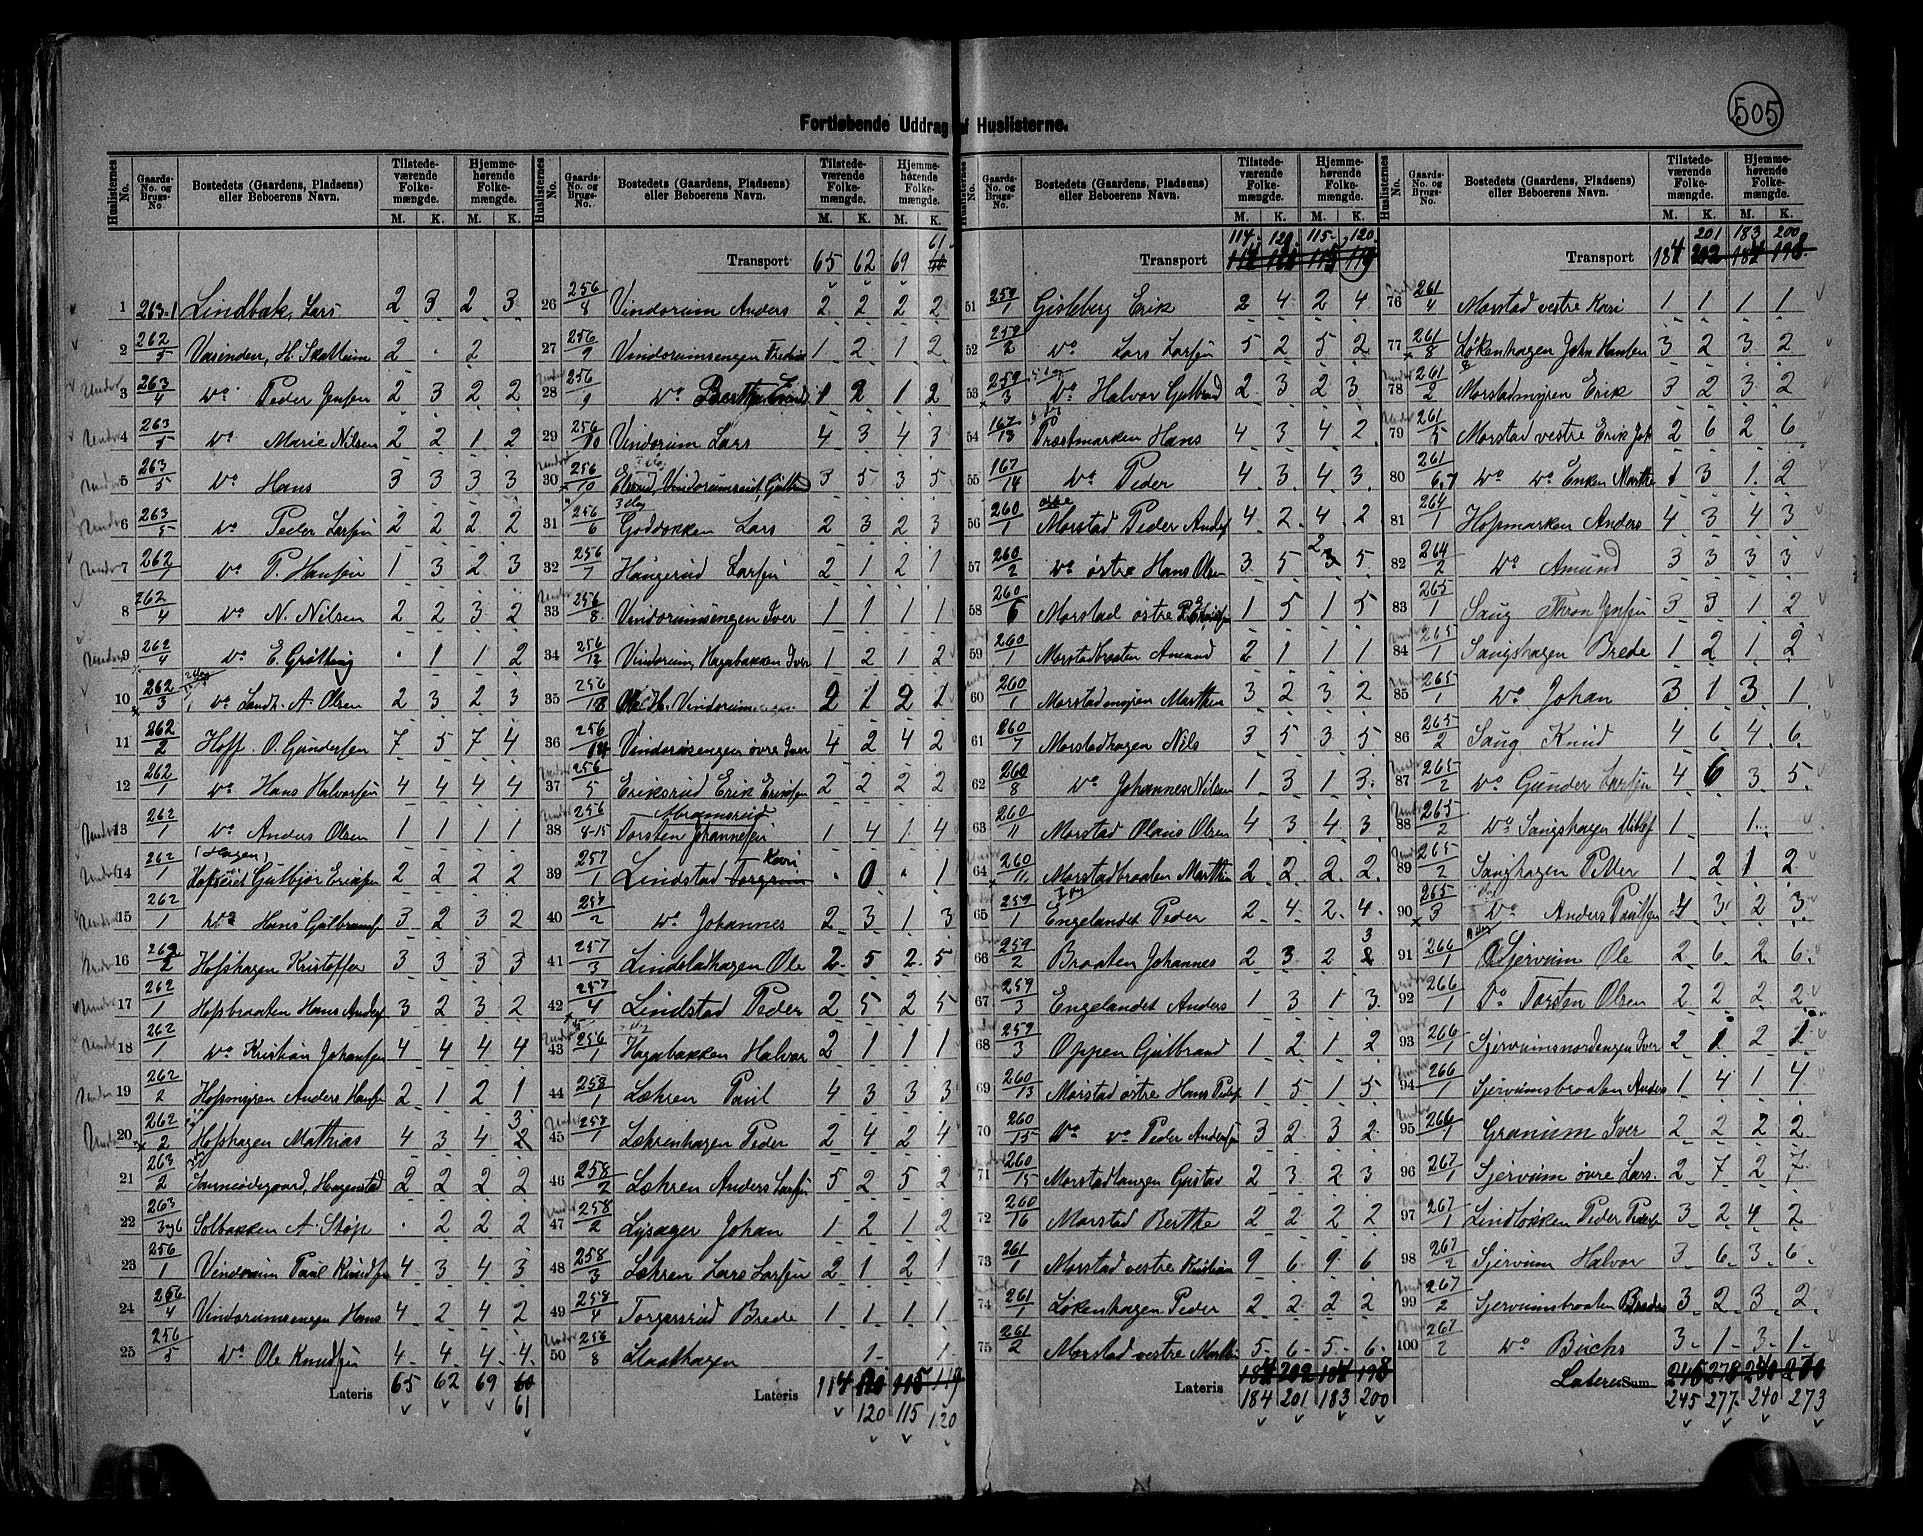 505
Fortløbende Uddrag af Huslisterne.
Huslisternes No. Gaards-No. og Brugs-No. Bostedets (Gaardens, Pladsens) eller Beboerens Navn. Tilstedeværende Folkemængde. M. K. Hjemmehørende Folkemængde. M. K.
1 263-1 Lindbak, Lars 2 3 2 3
2 262/5 Vaienden, H. Skattum 2 . 2
3 263/4 Do Peder Jensen 2 3 2 2
4 263/5 Do Marie Nilsen 2 2 1 2
5 263/5 Do Hans 3 3 3 3
6 263/5 Do Peder Larsen 2 2 2 2
7 262/1 Do P. Hansen 1 3 2 3
8 262/4 Do N. Nilsen 2 2 3 2
9 262/4 Do E. Grötting . 1 1 2
10 262/3 Do Landh. A. Olsen 2 3 2 3
11 262/2 Hoff. O. Gundersen 7 5 7 4
12 262/1 Do Hans Halvorsen 4 4 4 4
13 262/1 Do Anders Olsen 1 1 1 1
14 262/1 (Hagen) Gulbjør Eriksen 2 2 2 2
15 262/1 Do Hans Gulbrands 3 2 3 2
16 262/2 Hofshagen Kristoffer 3 3 3 3
17 262/1 Hofsbraaten Hans Anders 3 2 3 2
18 262/1 Do Kristian Johansen 4 4 4 4
19 262/2 Hofsmyren Anders Hansen 2 1 2 1
20 262/2 Hofshagen Mathias 4 3 4 3
21 263/2 Hagenstad 2 2 2 2
22 263/3 og 6 Solbakken A. Støp . 2 2 2
23 256/1 Vindorum Paul Knudsen 4 3 4 3
24 256/4 Vindorumsengen Hans 4 2 4 2
25 256/5 Do Ole Knudsen 4 4 4 4
Lateris 65 62 69 60
61
Transport 65 62 69 61
26 256/8 Vindorum Anders 2 2 2 2
27 256/9 Vindorumsengen Fredrik 1 2 1 2
28 256/9 Do Berthe 1 2 1 2
29 256/10 Vindorum Lars 4 3 4 3
30 256/10 Vindorumseiet Gulbrand 3 5 3 5
31 256/6 Goddokken Lars 2 3 2 3
32 256/7 Haugerud Larsen 2 1 2 1
33 256/8 Vindorumsengen Iver 1 1 1 1
34 256/12 Vindorum, Hagabakken Iver 1 2 1 2
35 256/18 Ole H. Vindorum 2 1 2 1
36 256/14 Vindorumsengen øvre Iver 4 2 4 2
37 256/5 Eriksrud Erik Eriksen 2 2 2 2
38 256/8-15 Abramsrud Torsten Johannesen 1 4 1 4
39 257/1 Lindstad Kari . 0 . 1
40 257/2 Do Johannes 2 3 1 3
41 257/3 Lindstadhagen Ole 2 5 2 5
42 257/4 Lindstad Peder 2 5 2 5
43 256/1 Hagabakken Halvor 2 1 1 1
44 258/1 Læhren Paul 4 3 3 3
45 257/1 Læhrenhagen Peder 2 4 2 4
46 258/2 Læhren Anders Larsen 5 2 5 2
47 258/2 Lysager Johan 1 2 1 2
48 258/3 Læhren Lars Larsen 2 1 2 1
49 258/4 Torgersrud Brede 1 1 1 1
50 256/8 Staathagen 1 1
Lateris 114 120 115 117
120 115 120
Transport 114 120 115 120
51 259/1 Gisleberg Erik 2 4 2 4
52 259/2 Do Lars Larsen 5 2 5 2
53 259/3 Do Halvor Gulbrand 2 3 2 3
54 167/13 Præstmarken Hans 4 3 4 2
55 167/14 Do Peder 4 3 4 3
56 260/1 Morstad Peder Anders 4 2 4 2
57 260/2 Do østre Hans Olsen 3 5 2 5
58 260/6 Morstad østre P. 1 5 1 5
59 260/1 Morstadbraaten Amund 2 1 1 1
60 260/1 Morstadmyren Marthin 3 2 3 2
61 260/7 Morstadhagen Nils 3 5 3 5
62 260/8 Do Johannes Nilsen 1 3 1 3
63 260/11 Morstad Olaus Olsen 4 3 4 3
64 260/11 Morstadbraaten Marthin 2 2 2 2
65 259/1 Engelandet Peder 2 4 2 4
66 259/2 Braaten Johannes 2 3 2 3
67 259/3 Engelandet Anders 1 3 1 3
68 259/3 Oppen Gulbrand 1 2 1 2
69 260/13 Morstad østre Hans Peders 1 5 1 5
70 260/15 Do Do Peder Andersen 3 2 3 2
71 260/15 Morstadhaugen Gustav 2 3 2 3
72 260/16 Morstad Berthe 2 2 2 2
73 261/1 Morstad vestre Kristian 9 6 9 6
74 261/1 Løkenhagen Peder 2 2 2 2
75 261/2 Morstad vestre Marthin 5 6 5 6
184 202 184 198
184 201 183 200
Transport 184 201 183 200
76 261/4 Morstad vestre Kari 1 1 1 1
77 261/8 Løkenhagen John Hansen 3 2 3 2
78 261/2 Morstadmyren Erik 3 2 3 2
79 261/5 Morstad vestre Erik Joh 2 6 2 6
80 261/6,7 Do Do Enken Marthe 1 3 1 2
81 264/1 Hofmarken Anders 4 3 4 3
82 264/2 Do Amund 3 3 3 3
83 265/1 Saug Thron Jensen 3 3 1 2
84 265/1 Saugshagen Brede 1 2 1 2
85 265/1 Do Johan 3 1 3 1
86 265/2 Saug Knud 4 6 4 6
87 265/2 Do Gunder Larsen 4 6 3 5
88 265/2 Do Saugshagen 1 1
89 265/2 Saugshagen Peder 1 2 1 2
90 265/3 Do Anders Paulsen 4 3 2 3
91 266/1 Sjervum Ole 2 6 2 6
92 266/1 Do Torsten Olsen 2 2 2 2
93 266/1 Sjervumsnordengen Iver 2 1 2 1
94 266/1 Sjervumsbraaten Anders 1 4 1 4
95 266/1 Granum Iver 2 2 2 2
96 267/1 Sjervum øvre Lars 2 7 2 7
97 267/1 Lindløkken Peder Peders 3 2 4 2
98 267/2 Sjervum Halvor 3 6 3 6
99 267/2 Sjervumsbraaten Brede 3 2 3 2
100 267/2 Do Buchs 3 1 3 1
Lateris Sum 245 278 240 270
245 277 240 273